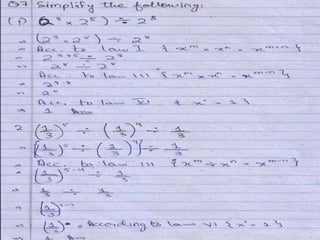 Q7 Simplify the following:
(i) (2³ × 2⁵) ÷ 2⁸
⇒ (2³ × 2⁵) ÷ 2⁸
⇒ Acc. to law I { xᵐ × xⁿ = xᵐ⁺ⁿ }
⇒ 2³⁺⁵ ÷ 2⁸
⇒ 2⁸ ÷ 2⁸
Acc. to law III { xᵐ ÷ xⁿ = xᵐ⁻ⁿ }
⇒ 2⁸⁻⁸
⇒ 2⁰
Acc. to law VI { x⁰ = 1 }
⇒ 1 Ans
2 (1/3)⁵ ÷ (1/3)⁴ ÷ 1/3
⇒ {(1/3)⁵ ÷ (1/3)⁴} ÷ 1/3
⇒ Acc. to law III { xᵐ ÷ xⁿ = xᵐ⁻ⁿ }
⇒ (1/3)⁵⁻⁴ ÷ 1/3
⇒ 1/3 ÷ 1/3
⇒ (1/3)¹⁻¹
⇒ (1/3)⁰ = According to law VI { x⁰ = 1 }
⇒ 1 Ans